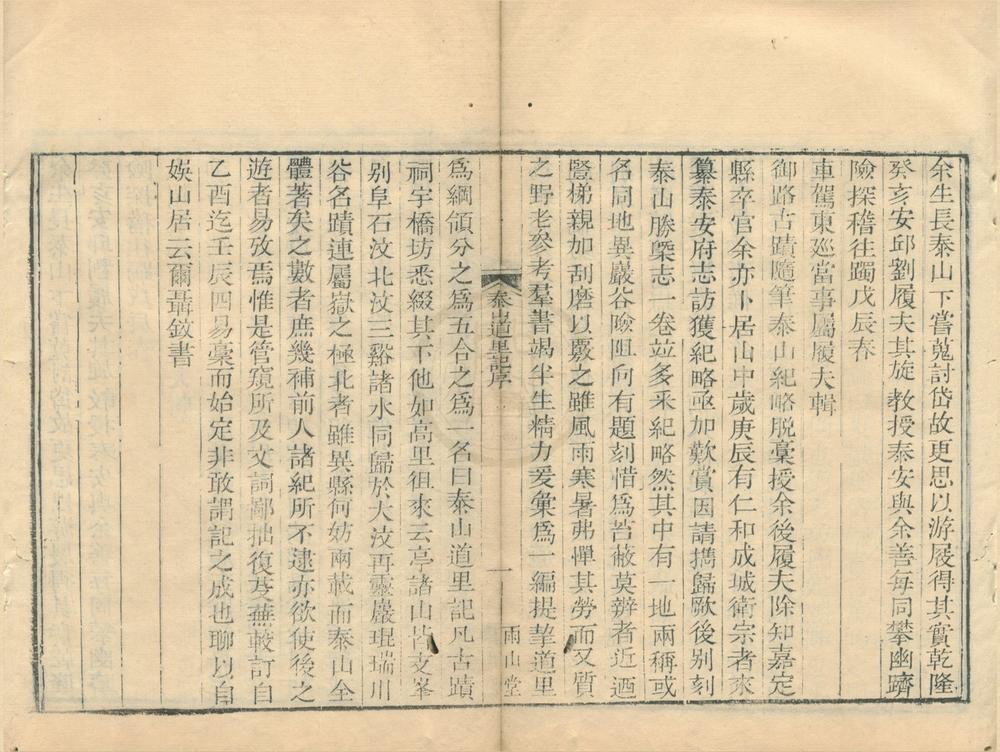 余生長泰山下嘗蒐討岱故更思以游屐得其實乾隆
癸亥安邱劉履夫其旋教授泰安與余善每同攀幽躋
險探稽往躅戊辰春
車駕東廵當事屬履夫輯
御路古蹟隨筆泰山紀略脱稾授余後履夫除知嘉定
縣卒官余亦卜居山中歲庚辰有仁和成城衛宗者來
纂泰安府志訪獲紀略亟加歎賞因請擕歸歟後别刻
泰山勝槩志一卷竝多采紀略然其中有一地兩稱或
名同地異巖谷險阻向有題刻惜爲苔蔽莫辨者近迺
豎梯親加刮磨以覈之雖風雨寒暑弗憚其勞而又質
之野老叅考羣書竭半生精力爰彙爲一編提挈道里
泰山道里記序
一
雨山堂
爲綱領分之爲五合之爲一名曰泰山道里記凡古蹟
祠宇橋坊悉綴其下他如高里徂來云亭諸山皆支峯
别阜石汶北汶三谿諸水同歸於大汶再靈巖琨瑞川
谷名蹟連屬嶽之極北者雖異縣何妨兩載而泰山全
體著矣之數者庶幾補前人諸紀所不逮亦欲使後之
遊者易攷焉惟是管窺所及文詞鄙拙復芟蕪較訂自
乙酉迄壬辰四易稾而始定非敢謂記之成也聊以自
娛山居云爾聶鈫書